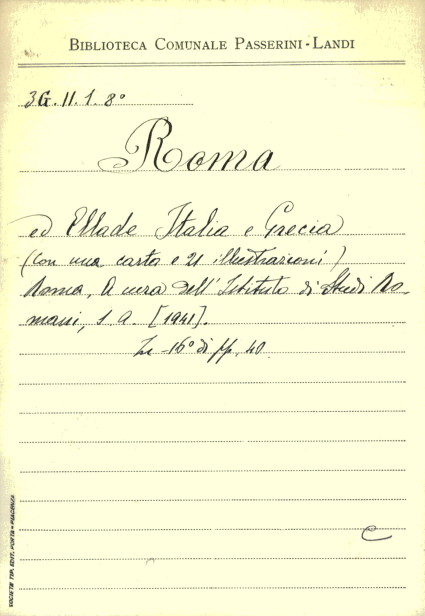 BIBLIOTECA COMUNALE PASSERINI-LANDI
3G.II.1.8°
Roma
ed Ellade Italia e Grecia
(con una carta e 21 illustrazioni)
Roma, A cura dell'Istituto di Studi Ro-
mani, s.a. [1941].
In-16° di pp. 40.
C
SOCIETÀ TIP. EDIT. PORTA - PIACENZA